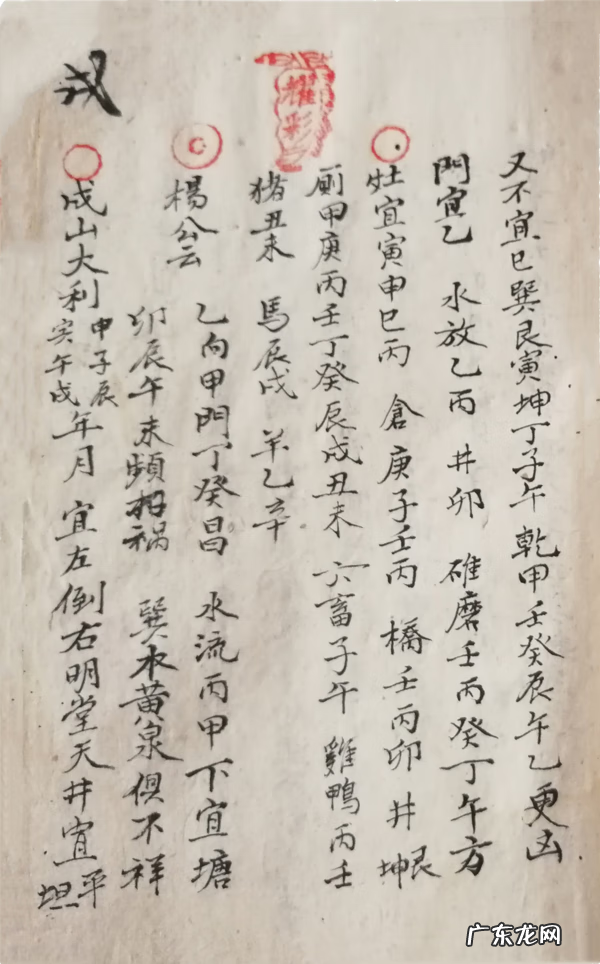 耀彩
又不宜巳巽艮寅坤丁子午 乾甲壬癸辰午乙更凶
門宜乙 水放乙丙 井卯 碓磨壬丙癸丁午方
灶宜寅申巳丙 倉庚子壬丙 橋壬丙卯 井艮坤
厠甲庚丙壬丁癸辰戌丑未 六畜子午 雞鴨丙壬
猪丑未 馬辰戌 羊乙辛
楊公云 乙向甲門丁癸昌 水流丙甲下宜塘
卯辰午未頻招禍 巽水黄泉俱不祥
戌
戌山大利申子辰寅午戌年月 宜左倒右明堂天井宜平坦
广东龙网